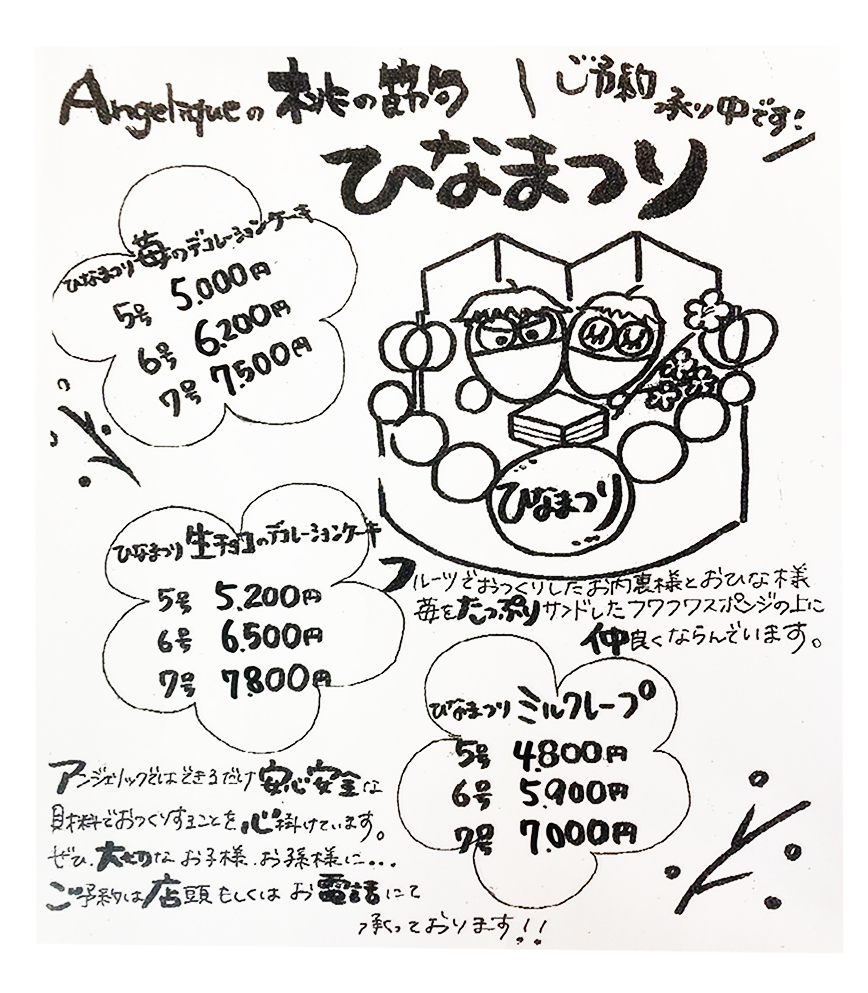 Angeliqueの 桃の節句
ご予約
承り中です!
ひなまつり
ひなまつり苺のデコレーションケーキ
5号 5.000円
6号 6.200円
7号 7.500円
ひなまつり
ひなまつり生チョコのデコレーションケーキ
5号 5.200円
6号 6.500円
7号 7.800円
フルーツでおつくりしたお内裏様とおひな様
苺をたっぷりサンドしたフワフワスポンジの上に
仲良くならんでいます。
ひなまつり ミルクレープ
5号 4.800円
6号 5.900円
7号 7.000円
アンジェリックではできるだけ安心安全な
材料でおつくりすることを心掛けています。
ぜひ、大切なお子様、お孫様に...
ご予約は店頭もしくはお電話にて
承っております!!